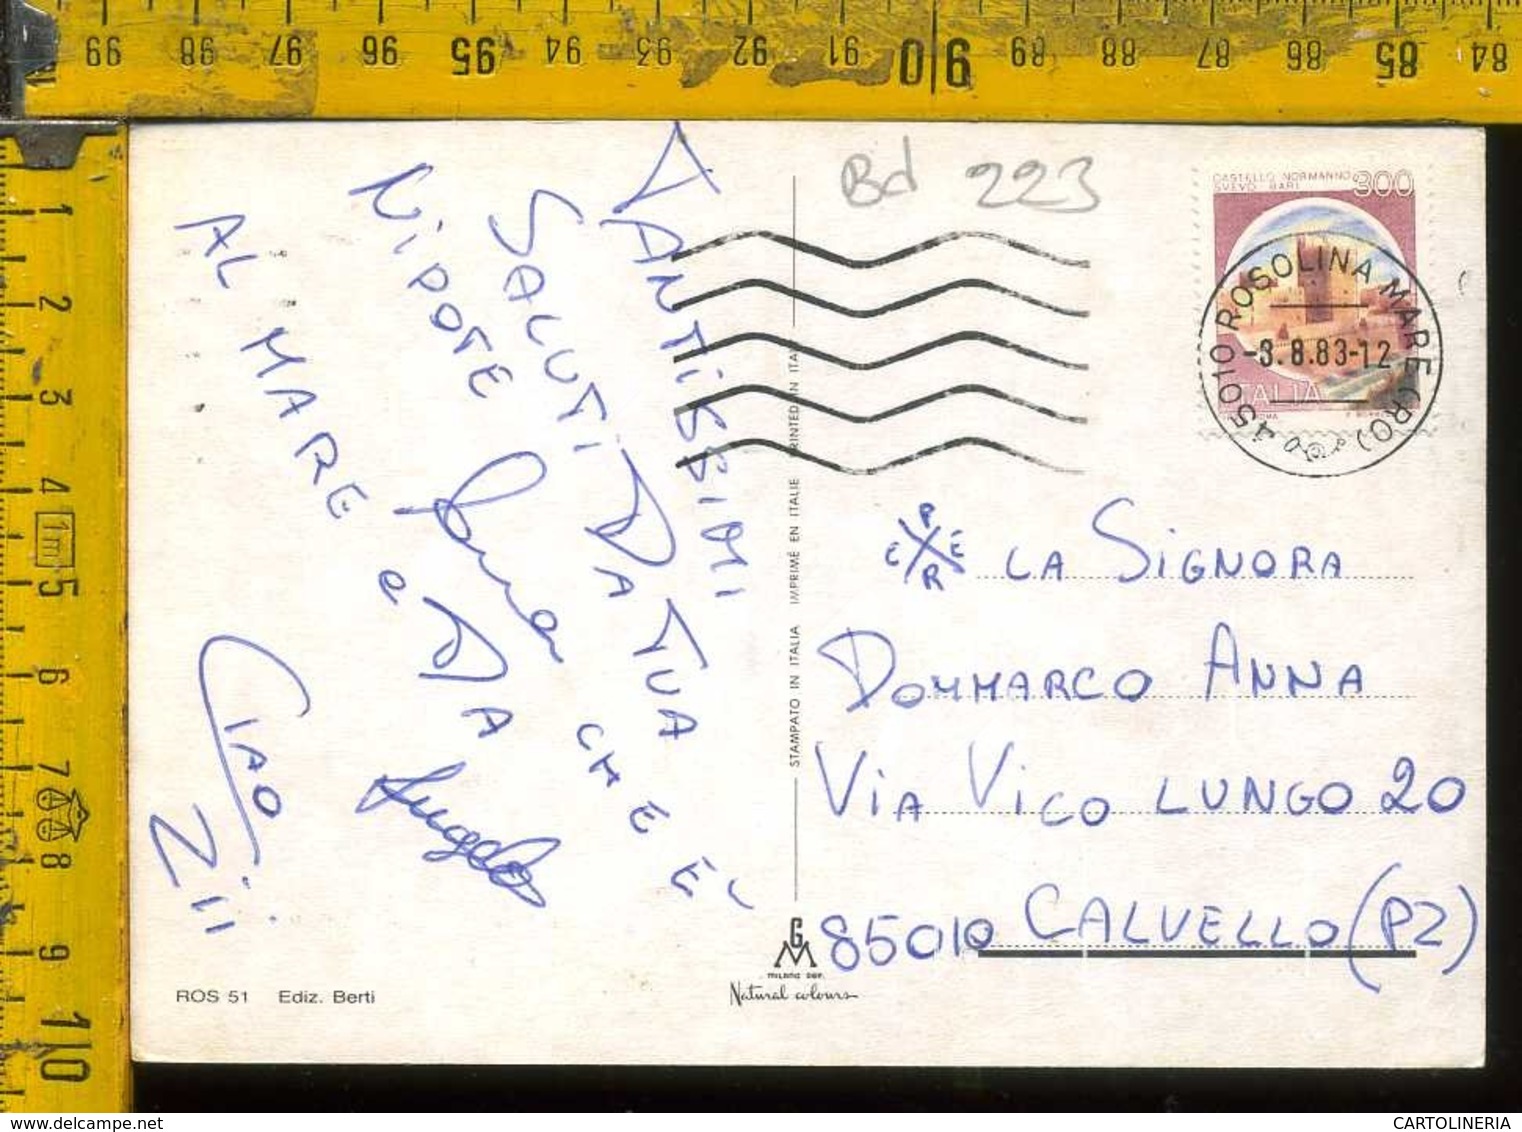 99 98 97 96 95 94 93 92 91 90 89 88 87 86 85 84
1
2
3
4
1m
5
6
7
8
9
10
Bd 223
CASTELLO NORMANNO
SVEVO BARI
300
ITALIA
45010 ROSOLINA MARE (RO)
-3.8.83-12
TANTISSIMI
SALUTI DA TUA
NIPOTE
CHE È
AL MARE e DA
CIAO
ZII
P
E E
R
LA SIGNORA
DOMMARCO ANNA
VIA VICO LUNGO 20
85010 CALVELLO (PZ)
STAMPATO IN ITALIA IMPRIMÉ EN ITALIE PRINTED IN ITA
GM
MILANO DEP.
Natural colours
ROS 51 Ediz. Berti
www.delcampe.net
CARTOLINERIA